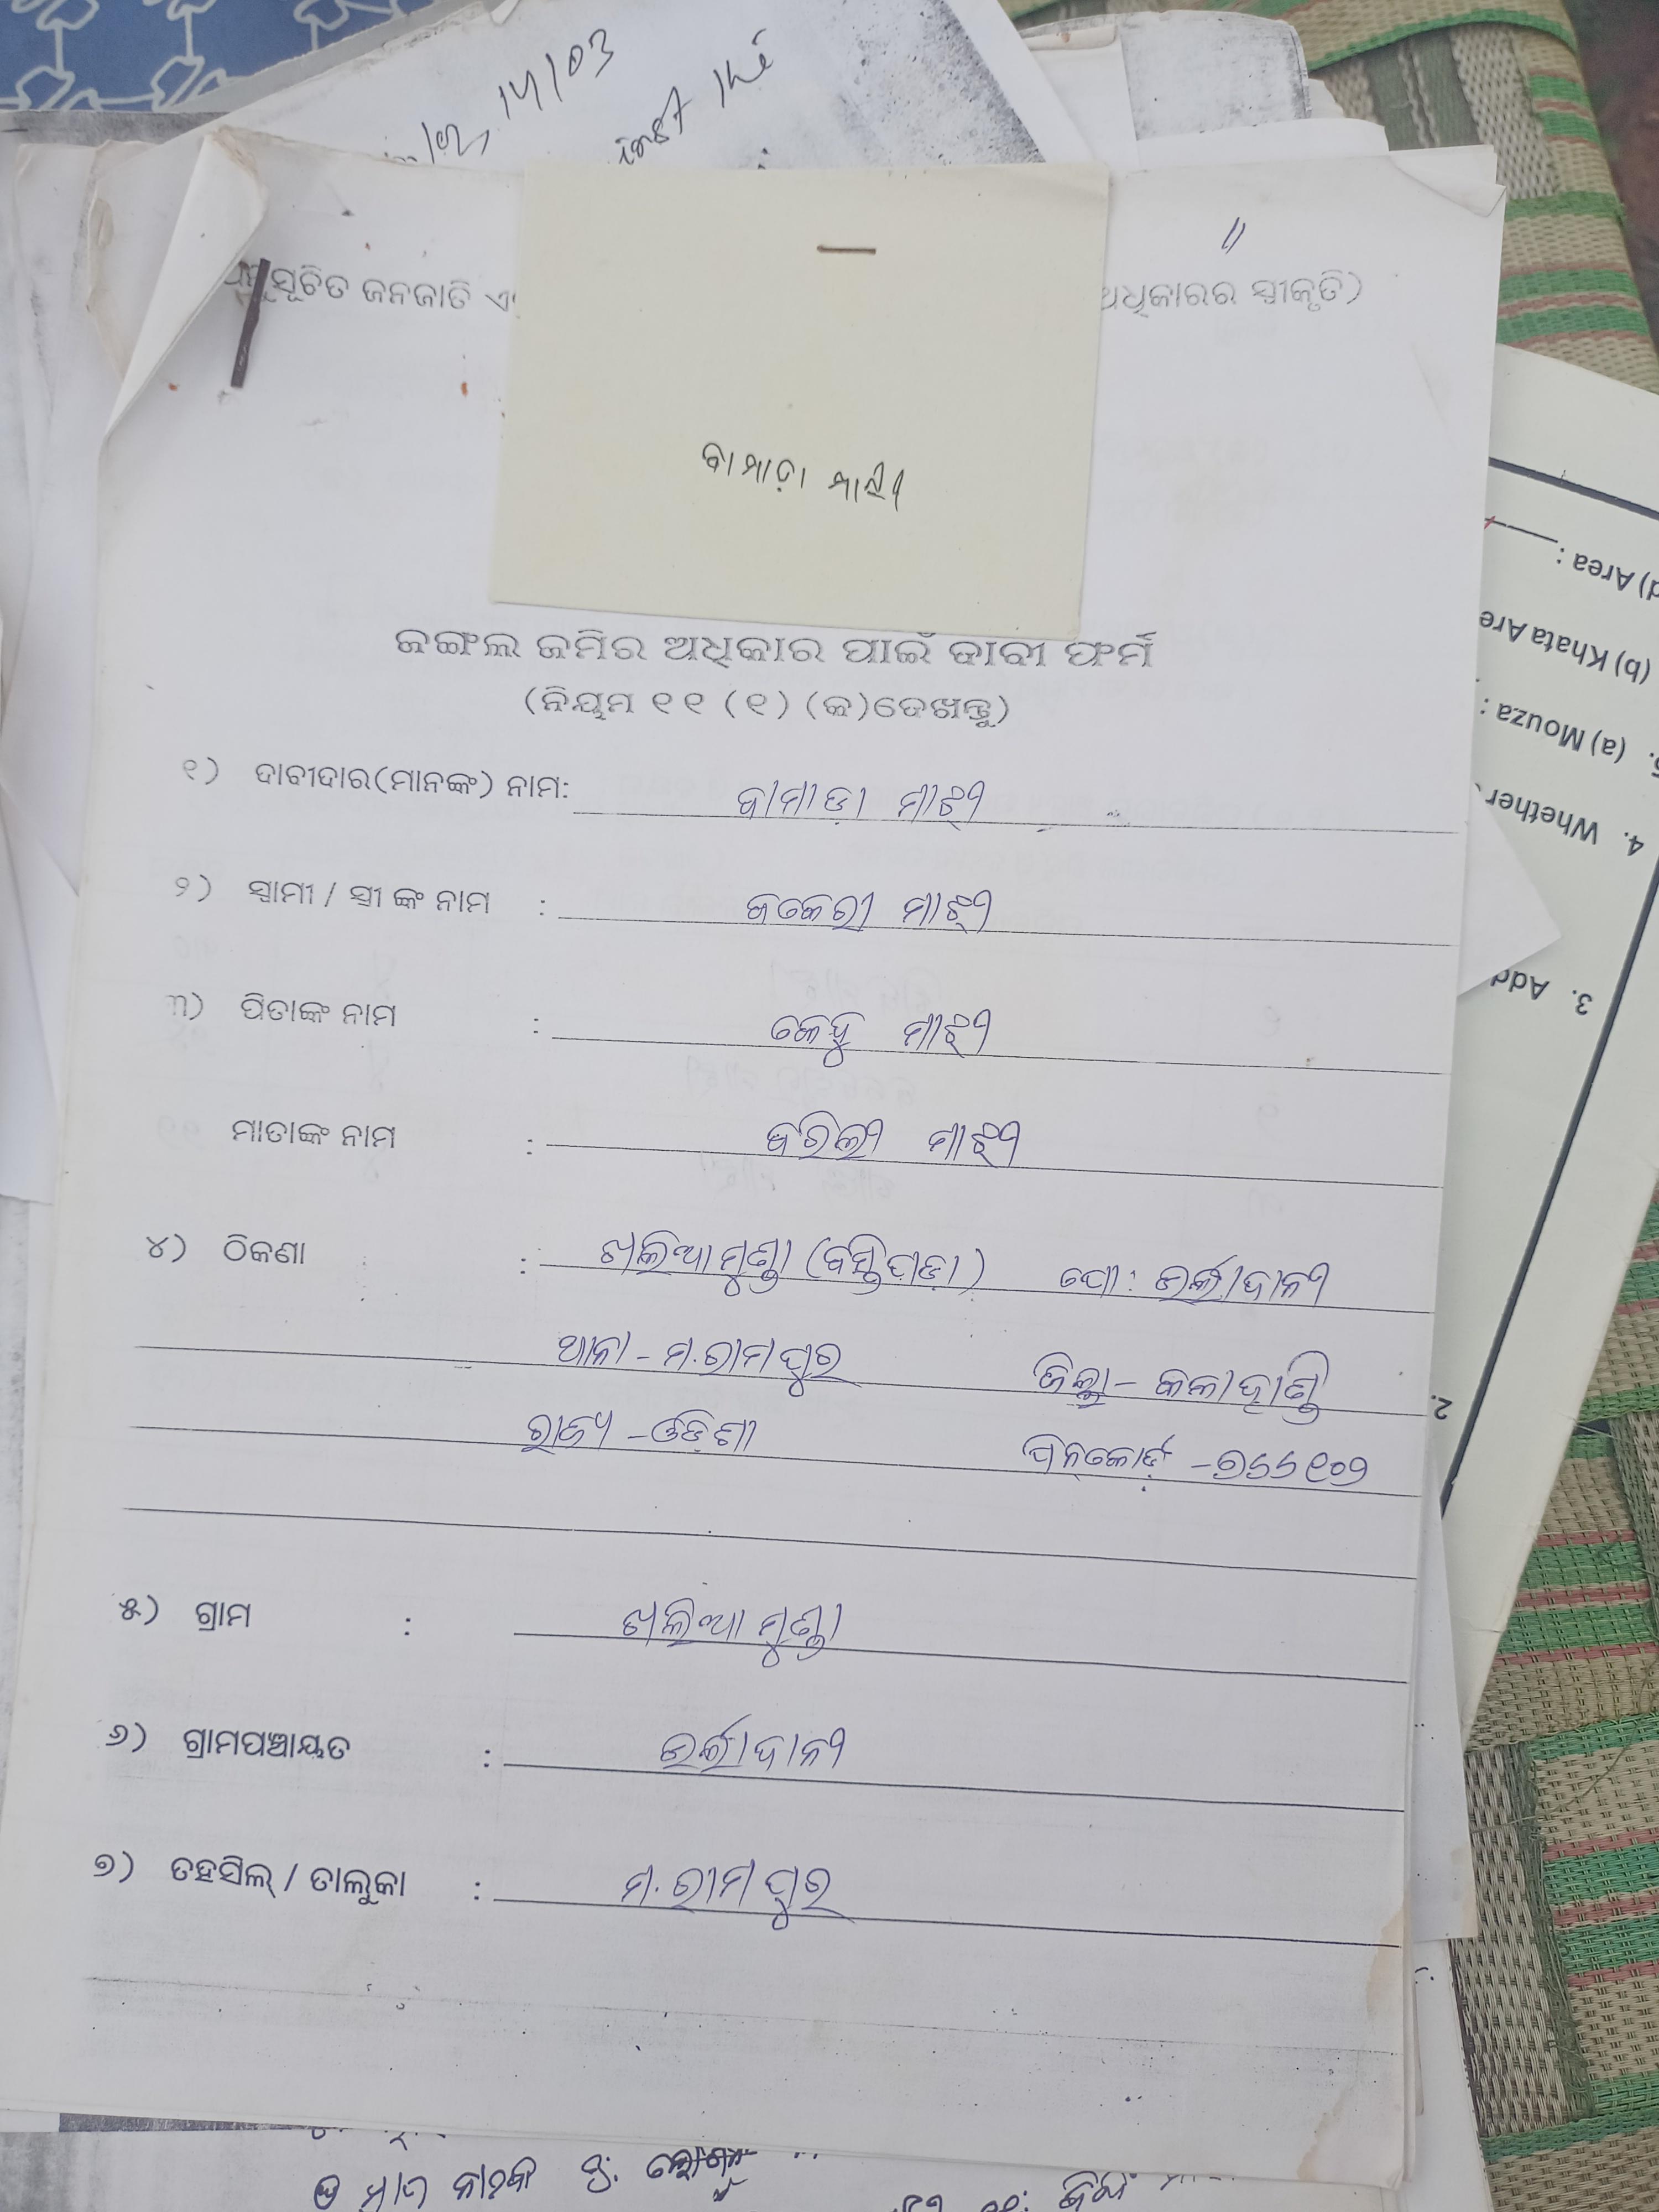 14/03
inst the
ସୂଚିତ ଜନଜାତି
ଅଧିକାରର ସ୍ୱୀକୃତି)
ବାମାଡ଼ା ମାଝୀ
ଜଙ୍ଗଲ ଜମିର ଅଧିକାର ପାଇଁ ଦାବୀ ଫର୍ମ
(ନିୟମ ୧୧ (୧) (କ)ଦେଖନ୍ତୁ)
୧) ଦାବୀଦାର(ମାନଙ୍କ) ନାମ: ବାମାଡ଼ା ମାଝୀ
୨) ସ୍ୱାମୀ / ସ୍ତ୍ରୀ ଙ୍କ ନାମ : ଜକେରୀ ମାଝୀ
୩) ପିତାଙ୍କ ନାମ : କେହୁ ମାଝୀ
ମାତାଙ୍କ ନାମ : ଝରିଲୀ ମାଝୀ
୪) ଠିକଣା : ଖଲିଆମୁଣ୍ଡା (ବସ୍ତିପଡ଼ା) ପୋ: ଉର୍ଲାଦାନୀ
ଥାନା - ମ.ରାମପୁର ଜିଲ୍ଲା - କଳାହାଣ୍ଡି
ରାଜ୍ୟ - ଓଡିଶା ପିନ୍‌କୋର୍ଡ଼ - ୭୬୬୧୦୨
୫) ଗ୍ରାମ : ଖଲିଆମୁଣ୍ଡା
୬) ଗ୍ରାମପଞ୍ଚାୟତ : ଉର୍ଲାଦାନୀ
୭) ତହସିଲ୍ / ତାଲୁକା : ମ.ରାମପୁର
d) Area :
(b) Khata Are
(a) Mouza :
4. Whether
3. Add
2.